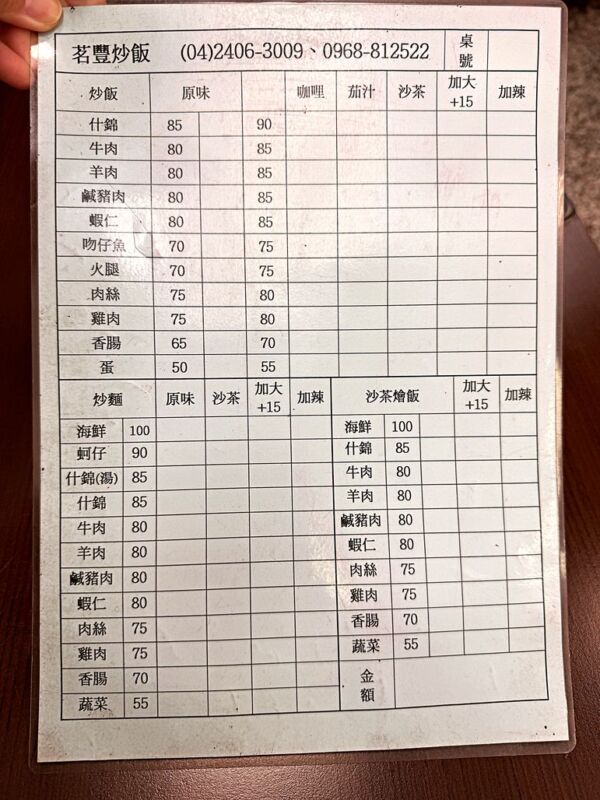 茗豐炒飯 (04)2406-3009、0968-812522 桌號
炒飯 原味 咖哩 茄汁 沙茶 加大+15 加辣
什錦 85 90
牛肉 80 85
羊肉 80 85
鹹豬肉 80 85
蝦仁 80 85
吻仔魚 70 75
火腿 70 75
肉絲 75 80
雞肉 75 80
香腸 65 70
蛋 50 55
炒麵 原味 沙茶 加大+15 加辣
海鮮 100
蚵仔 90
什錦(湯) 85
什錦 85
牛肉 80
羊肉 80
鹹豬肉 80
蝦仁 80
肉絲 75
雞肉 75
香腸 70
蔬菜 55
沙茶燴飯 加大+15 加辣
海鮮 100
什錦 85
牛肉 80
羊肉 80
鹹豬肉 80
蝦仁 80
肉絲 75
雞肉 75
香腸 70
蔬菜 55
金額